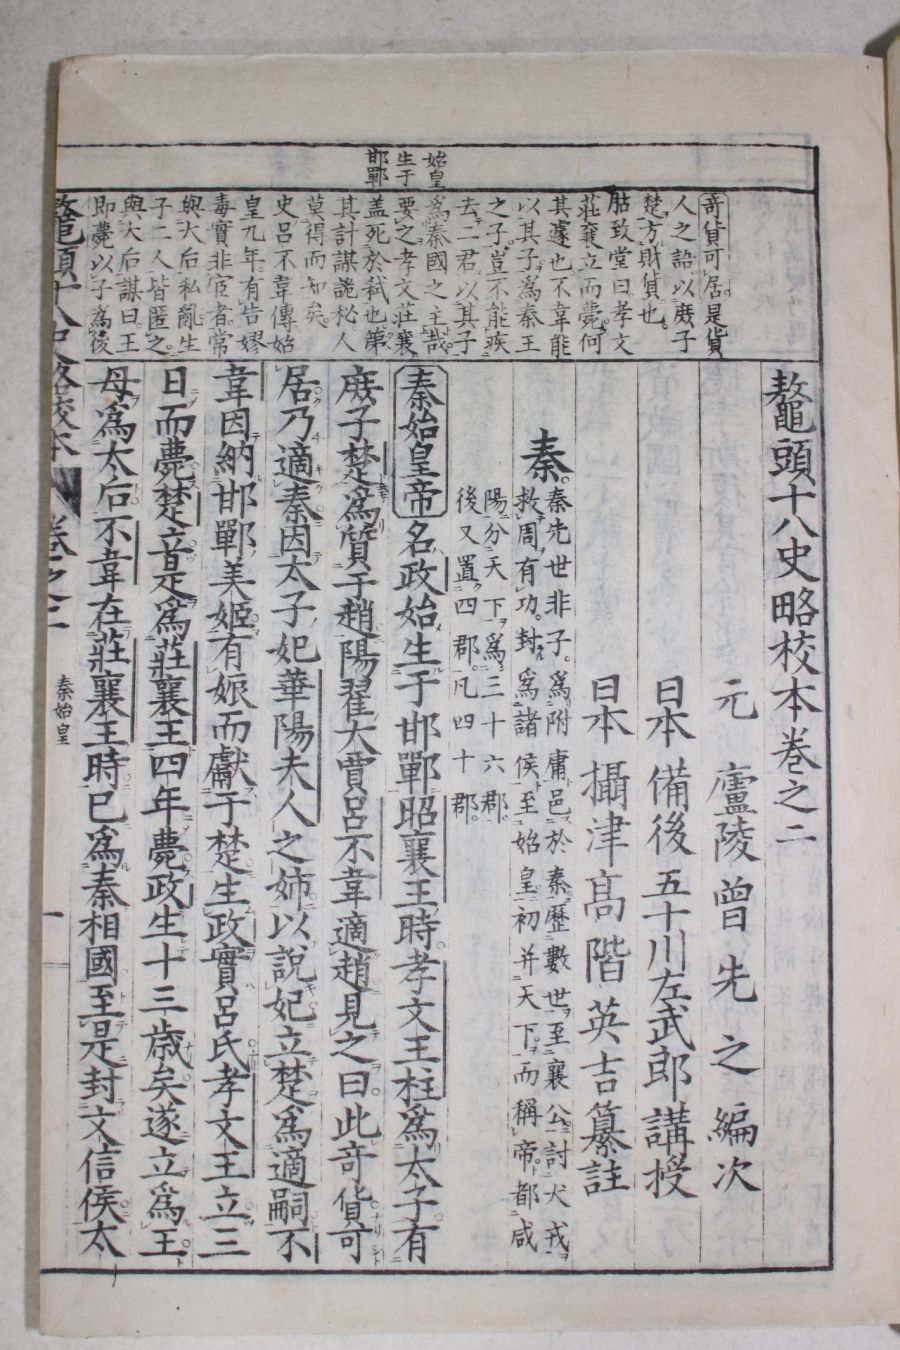 始皇
生于
邯鄲
奇貨可居是貨
人之語以庶子
楚方財貨也
胡致堂曰孝文
莊襄立而薨何
其遽也不韋能
以其子為秦王
之子豈不能疾
去二君以其子
為秦國之主哉
要之孝文莊襄
蓋死於弑也第
其計謀詭秘人
莫得而知矣
史呂不韋傳始
皇九年有告嫪
毒實非宦者常
與大后私亂生
子二人皆匿之
與大后謀曰王
即薨以子為後
鼇頭十八史略校本卷之二
元 廬陵曾先之編次
日本 備後五十川左武郎講授
日本 攝津髙階英吉纂註
秦
秦先世非子為附庸邑於秦歷數世至襄公討犬戎
救周有功封為諸侯至始皇初并天下而稱帝都咸
陽分天下為三十六郡
後又置四郡凡四十郡
秦始皇帝名政始生于邯鄲昭襄王時孝文王柱爲太子有
庶子楚爲質于趙陽翟大賈呂不韋適趙見之曰此奇貨可
居乃適秦因太子妃華陽夫人之姉以說妃立楚爲適嗣不
韋因納邯鄲美姬有娠而獻于楚生政實呂氏孝文王立三
日而薨楚立是爲莊襄王四年薨政生十三歲矣遂立爲王
母爲太后不韋在莊襄王時已爲秦相國至是封文信侯太
鼇頭十八史略校本
卷之二
秦始皇
一